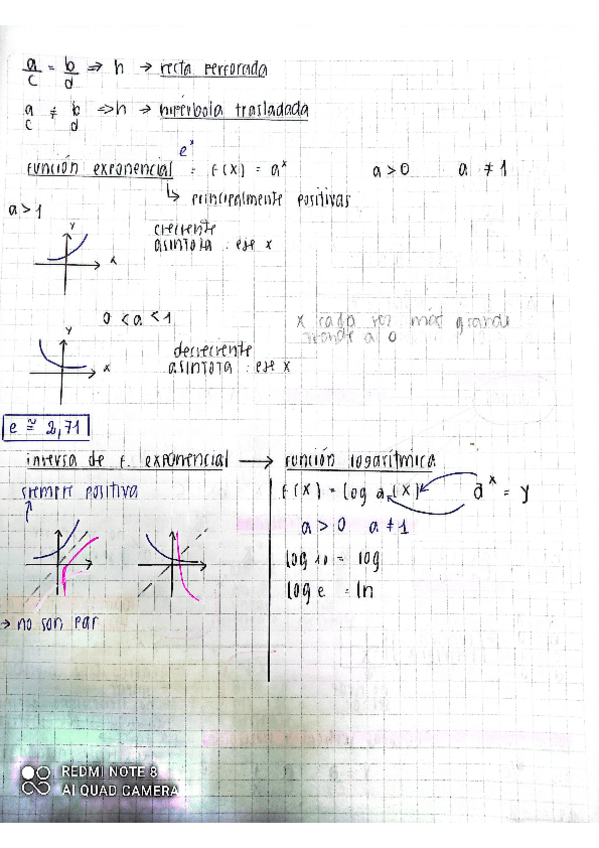 a/c = b/d => h → recta perforada
a/c ≠ b/d => h → hipérbola trasladada
e^x
Función exponencial = f(x) = a^x a>0 a ≠ 1
↳ principalmente positivas
a>1
creciente
asintota : eje x
y
x
0 < a < 1
x cada vez más grande
tiende a 0
decreciente
asintota : eje x
y
x
e ≅ 2,71
inversa de f. exponencial → función logarítmica
siempre positiva
f(x) = log a (x) a^x = y
a > 0 a ≠ 1
log 10 = log
log e = ln
→ no son par
REDMI NOTE 8
AI QUAD CAMERA